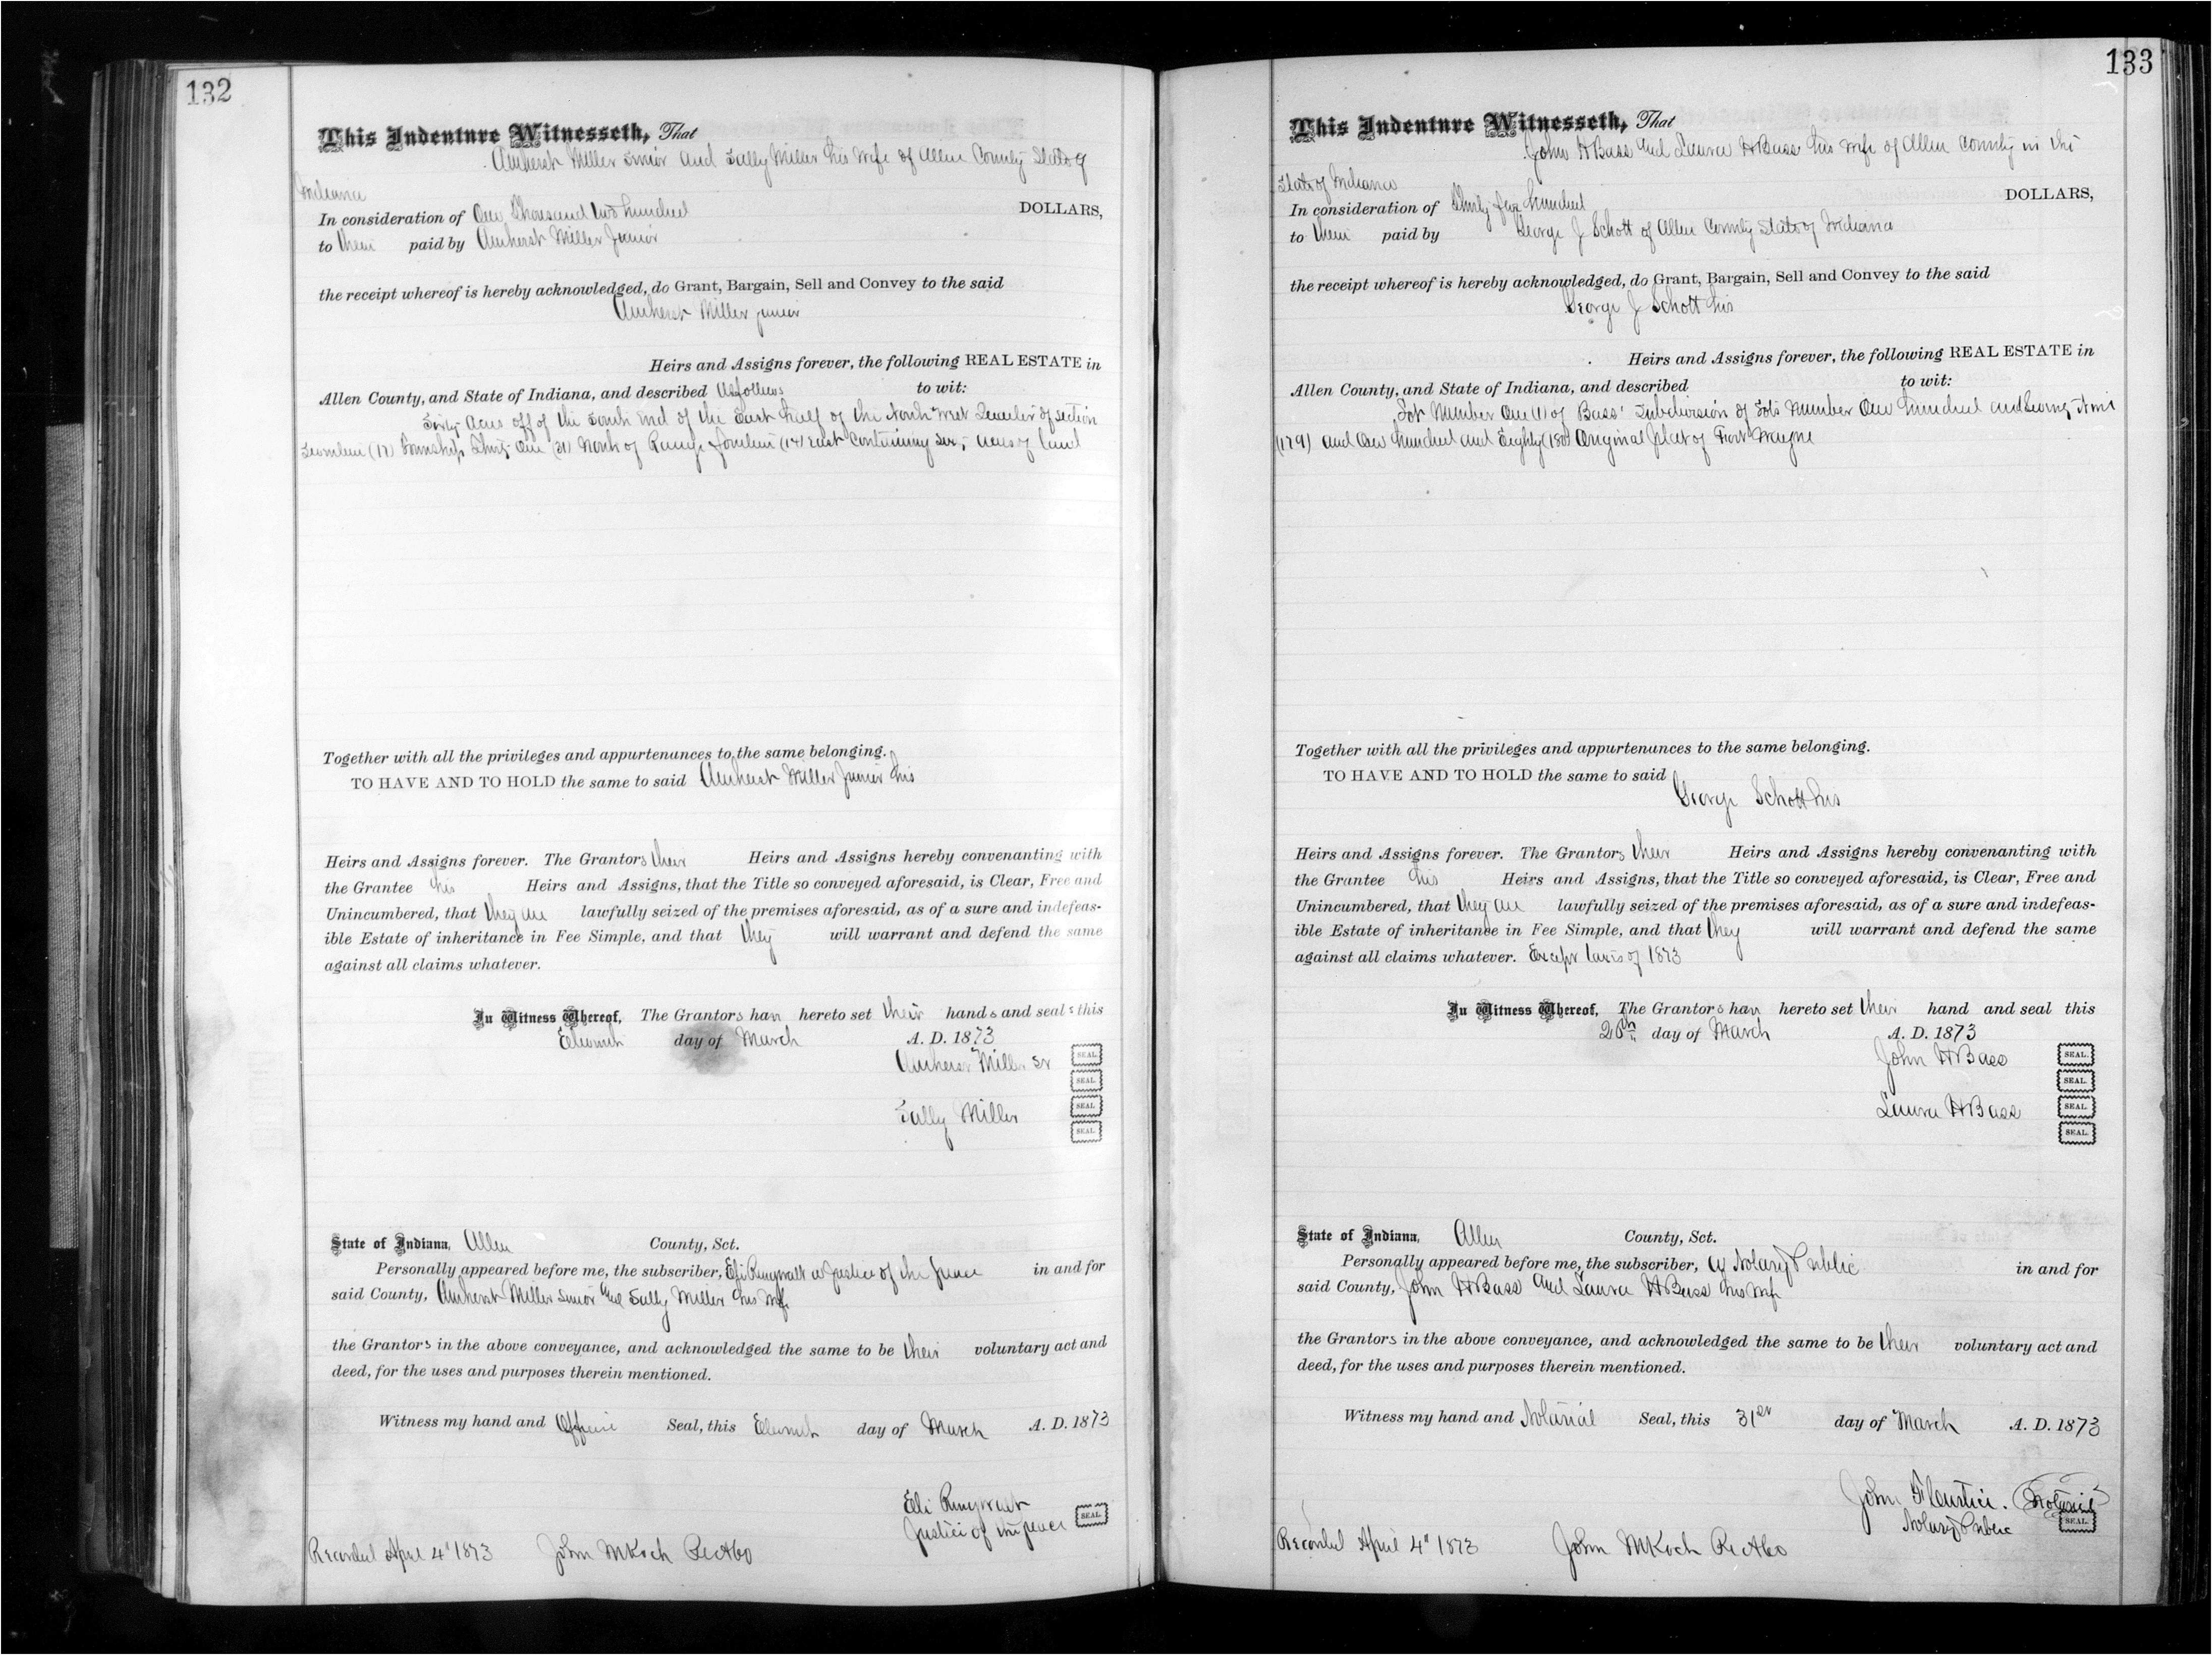 132
This Indenture Witnesseth, That
Amherst Miller Senior and Sally Miller his wife of Allen County State of
Indiana
In consideration of One Thousand two hundred DOLLARS,
to them paid by Amherst Miller Junior
the receipt whereof is hereby acknowledged, do Grant, Bargain, Sell and Convey to the said
Amherst Miller junior
Heirs and Assigns forever, the following REAL ESTATE in
Allen County, and State of Indiana, and described as follows to wit:
Sixty Acres off of the South End of the East half of the North West Quarter of section
Seventeen (17) Township Thirty One (31) North of Range fourteen (14) East Containing Sixty acres of land
Together with all the privileges and appurtenances to the same belonging.
TO HAVE AND TO HOLD the same to said Amherst Miller Junior his
Heirs and Assigns forever. The Grantors their Heirs and Assigns hereby convenanting with
the Grantee his Heirs and Assigns, that the Title so conveyed aforesaid, is Clear, Free and
Unincumbered, that they are lawfully seized of the premises aforesaid, as of a sure and indefeas-
ible Estate of inheritance in Fee Simple, and that they will warrant and defend the same
against all claims whatever.
In Witness Whereof, The Grantors have hereto set their hands and seals this
Eleventh day of March A. D. 1873
Amherst Miller Sr SEAL.
SEAL.
Sally Miller SEAL.
SEAL.
State of Indiana, Allen County, Sct.
Personally appeared before me, the subscriber, Eli Ringwalt a Justice of the peace in and for
said County, Amherst Miller Senior and Sally Miller his wife
the Grantors in the above conveyance, and acknowledged the same to be their voluntary act and
deed, for the uses and purposes therein mentioned.
Witness my hand and Seal, this Eleventh day of March A. D. 1873
Eli Ringwalt
Justice of the peace SEAL.
Recorded April 4" 1873 John M Koch Rec
133
This Indenture Witnesseth, That
John H Bass and Laura H Bass his wife of Allen County in the
State of Indiana
In consideration of Thirty five hundred DOLLARS,
to them paid by George J Schott of Allen County State of Indiana
the receipt whereof is hereby acknowledged, do Grant, Bargain, Sell and Convey to the said
George J Schott his
Heirs and Assigns forever, the following REAL ESTATE in
Allen County, and State of Indiana, and described to wit:
Lot Number One (1) of Bass' Subdivision of Lots Number One hundred and Seventy Nine
(179) and One hundred and Eighty (180) Original plat of Fort Wayne
Together with all the privileges and appurtenances to the same belonging.
TO HAVE AND TO HOLD the same to said
George Schott his
Heirs and Assigns forever. The Grantors their Heirs and Assigns hereby convenanting with
the Grantee his Heirs and Assigns, that the Title so conveyed aforesaid, is Clear, Free and
Unincumbered, that they are lawfully seized of the premises aforesaid, as of a sure and indefeas-
ible Estate of inheritance in Fee Simple, and that they will warrant and defend the same
against all claims whatever. Except taxes of 1873
In Witness Whereof, The Grantors have hereto set their hand and seal this
26th day of March A. D. 1873
John H Bass SEAL.
SEAL.
Laura H Bass SEAL.
SEAL.
State of Indiana, Allen County, Sct.
Personally appeared before me, the subscriber, a Notary Public in and for
said County, John H Bass and Laura H Bass his wife
the Grantors in the above conveyance, and acknowledged the same to be their voluntary act and
deed, for the uses and purposes therein mentioned.
Witness my hand and Notarial Seal, this 31st day of March A. D. 1873
John Notarial
Notary Public SEAL.
Recorded April 4" 1873 John M Koch Rec